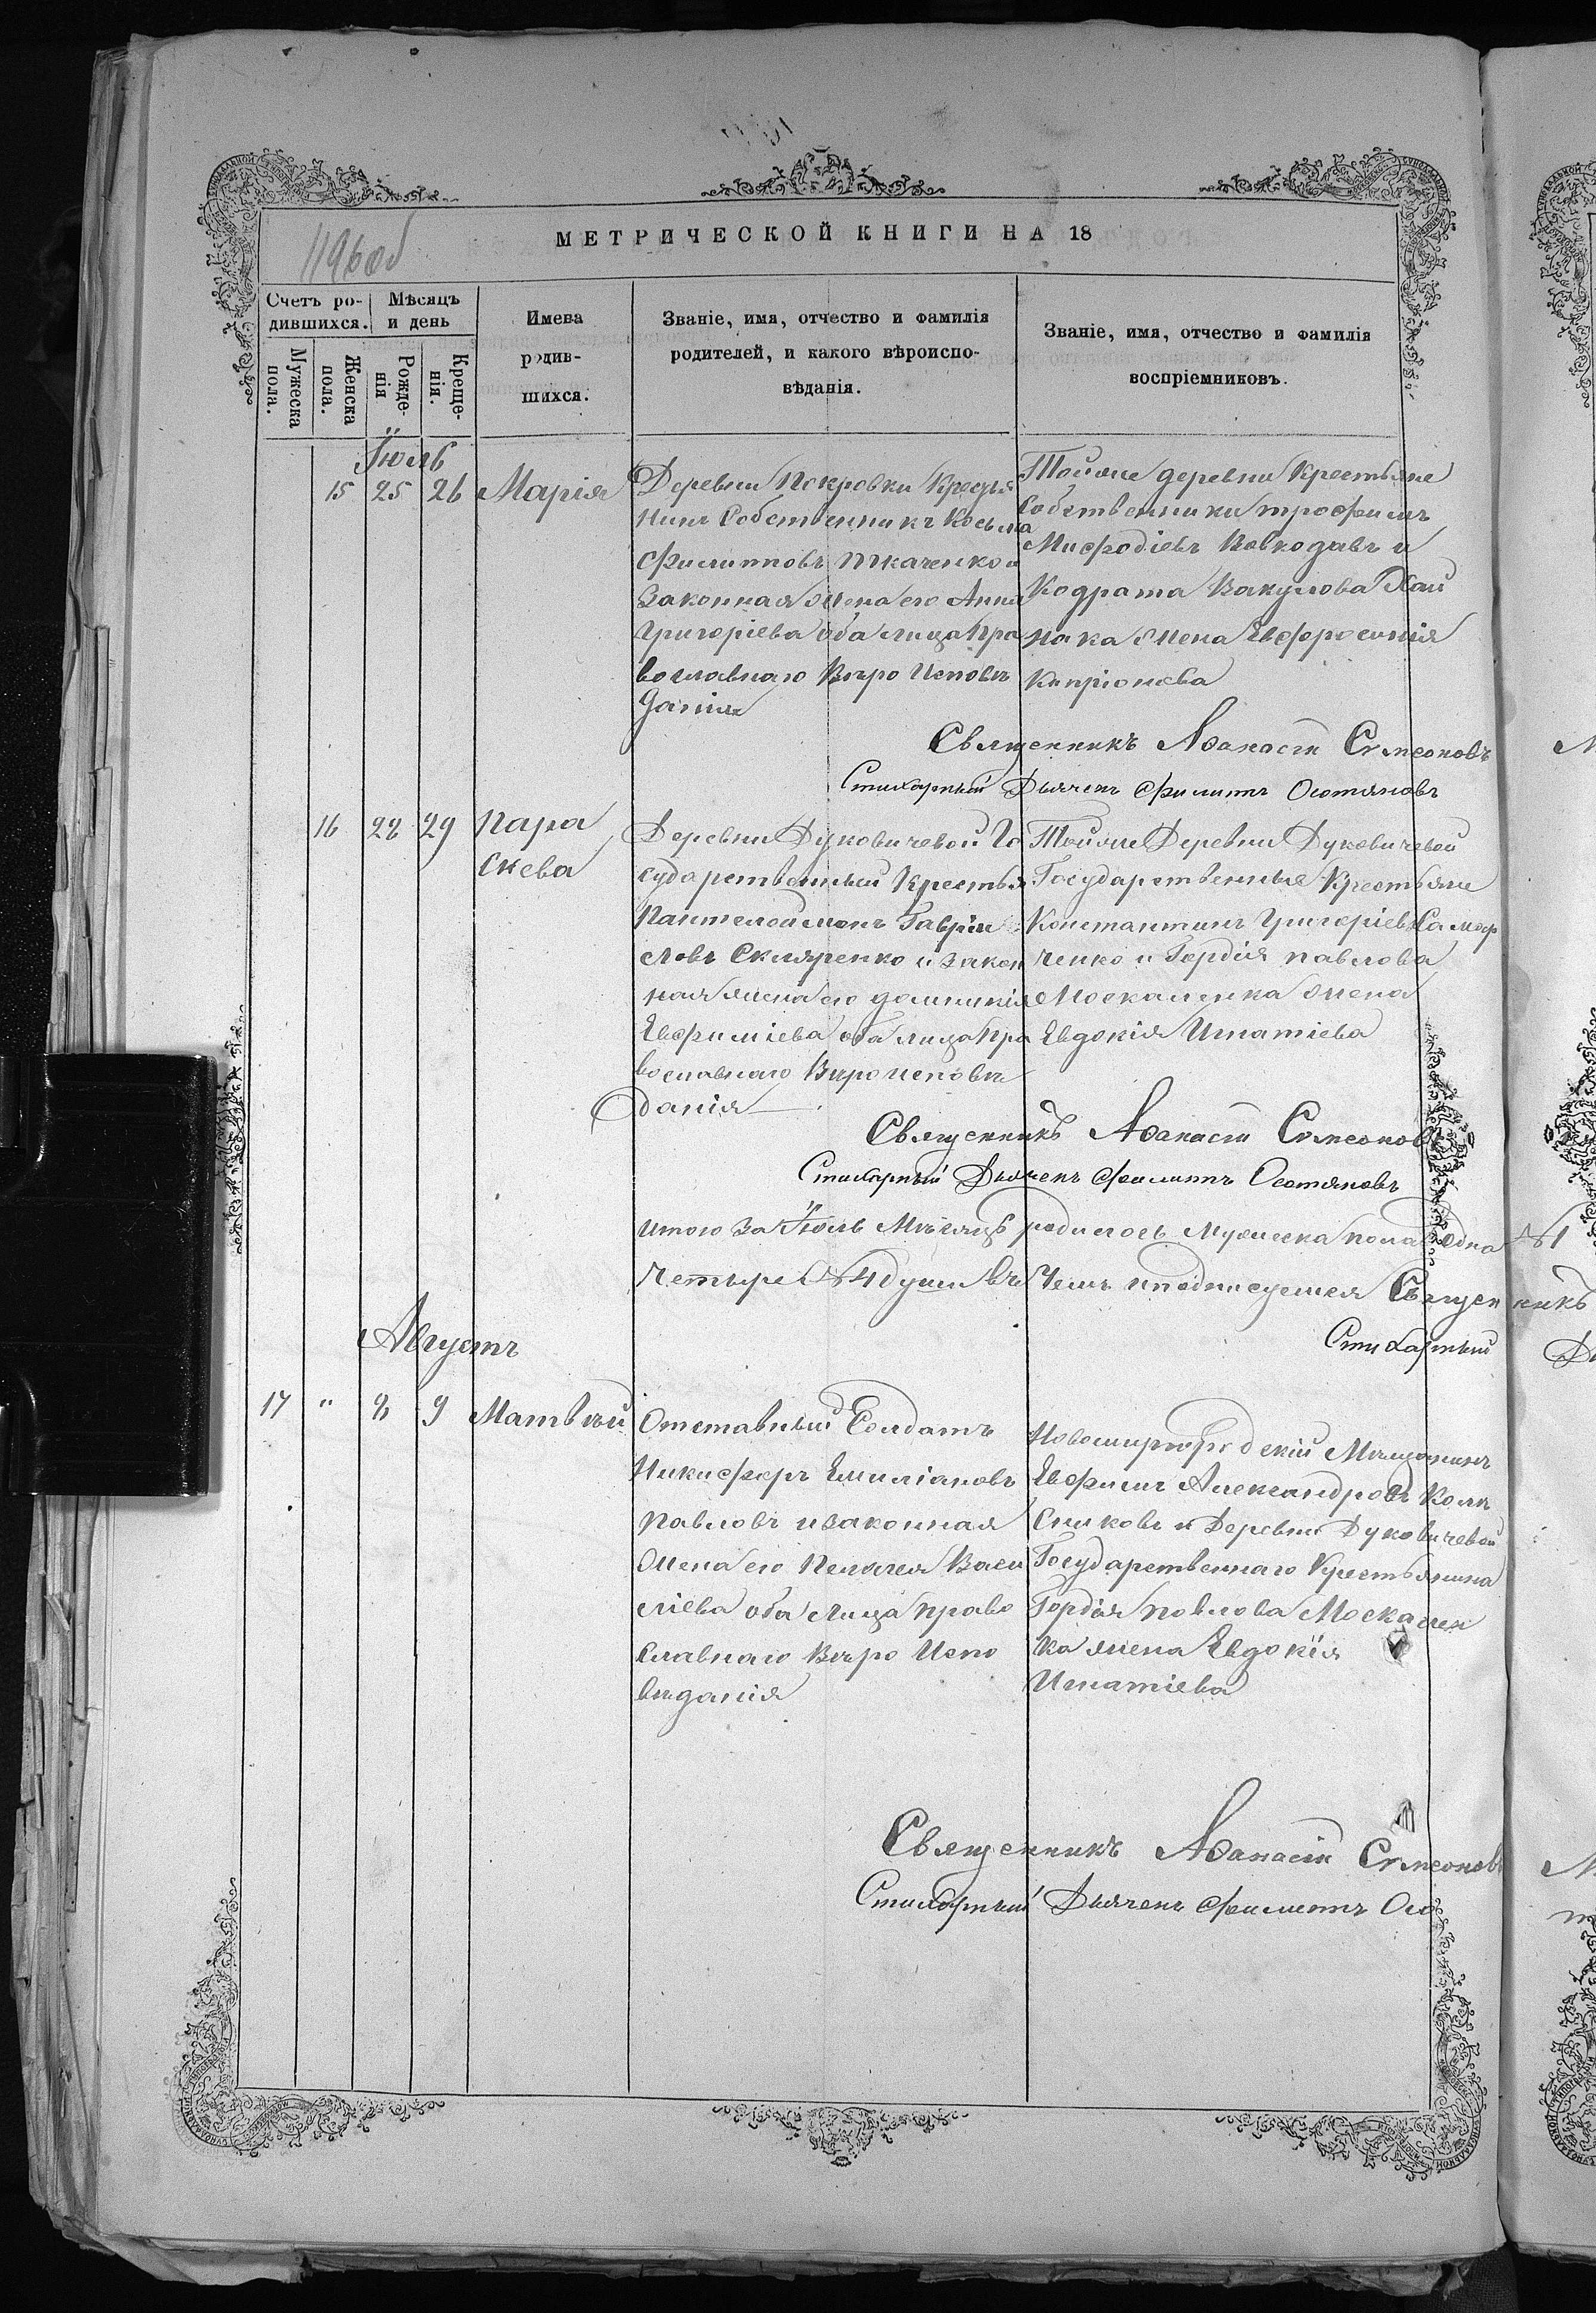 МЕТРИЧЕСКОЙ КНИГИ НА 18
1196об
Счетъ ро-
дившихся.
Мѣсяцъ
и день
Мужеска
пола.
Женска
пола.
Рожде-
нія
Креще-
нія.
Имена
родив-
шихся.
Званіе, имя, отчество и фамилія
родителей, и какого вѣроиспо-
вѣданія.
Званіе, имя, отчество и фамилія
воспріемниковъ.
Іюль
15 25 26 Марія
Деревни Покровки Кресья
нинъ Собственникъ Косьма
Филипповъ Ткаченко и
Законная жена его Анна
Григоріева оба лица Пра
вославнаго Вѣро Исповѣ
данія
Тойже деревни Крестьяне
Собственники Трофимъ
Мифодіевъ Вовкодавъ и
Кодрата Вакулова Хай
нака жена Евфросинія
Кипріонова
Священникъ Аѳанасій Симеоновъ
Стихарный Дьячекъ Филиппъ Остяновъ
16 28 29 Пара
скева
Деревни Дуковичевой Го
сударственный Крестья
Пантелеймонъ Гаврій
ловъ Скляренко и закон
ная жена его домникія
Евфиміева оба лица Пра
вославнаго Вѣроисповѣ
данія
Тойже Деревни Дуковичевой
Государственные Крестьяне
Константинъ Григоріевъ
ченко и Гордія павлова
Москаленка жена
Евдокія Игнатіева
Священникъ Аѳанасій Симеоновъ
Стихарный Дьячекъ Филиппъ Остяновъ
Итого За Іюль Мѣсяцъ родилось Мужеска пола Одна №1
Четыре №4 души въ Чемъ и подписуемся Священникъ
Стихарный
Августъ
17 " 8 9 Матвѣй
Отставный Солдатъ
Никифоръ Емиліановъ
Павловъ и законная
Жена его Пелагея Васи
ліева оба лица право
славнаго Вѣро Испо
вѣданія
Новомиргородскій Мѣщанинъ
Евфимъ Александровъ Колѣ
сниковъ и Деревни Дуковичевой
Государственнаго Крестьянина
Гордія повлова Москален
ка жена Евдокія
Игнатіева
Священникъ Аѳанасій Симеоновъ
Стихарный Дьячекъ Филиппъ Ос